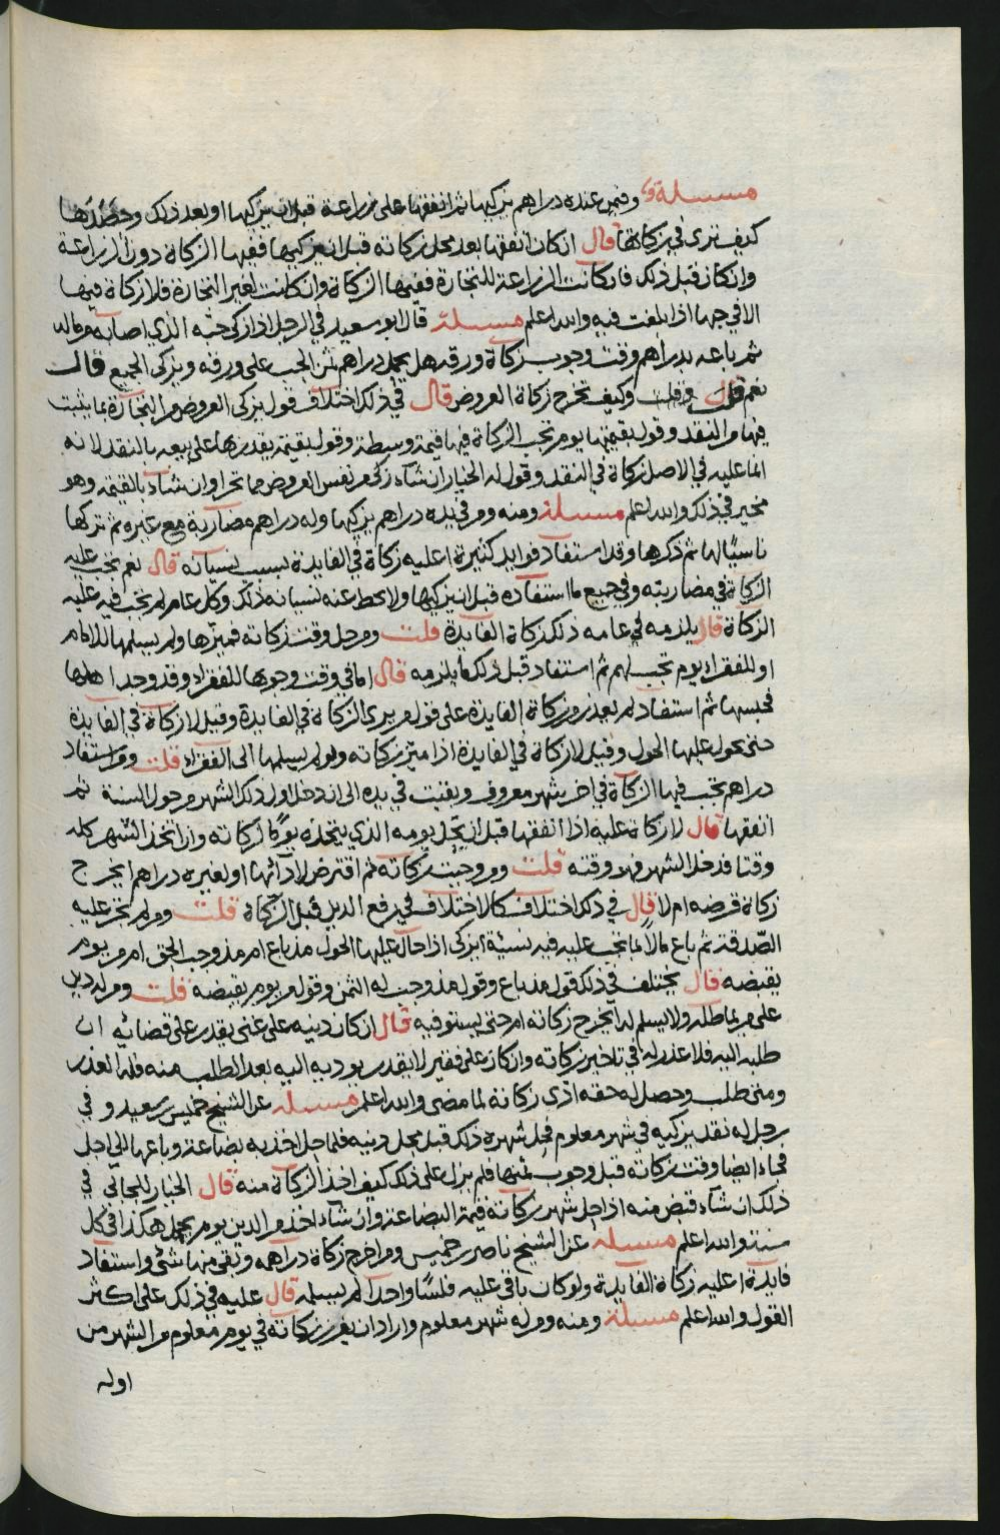 مسئلة وفيمن عنده دراهم يزكيها ثم انفقها على زراعة قبل ان يزكيها او بعد ذلك وحصدها
كيف ترى في زكاتها قال ان كان انفقها بعد محل زكاته قبل ان يزكيها ففيها الزكاة دون الزراعة
وان كان قبل ذلك فان كانت الزراعة للتجارة ففيها الزكاة وان كانت لغير التجارة فلا زكاة فيها
الا في حبها اذا بلغت فيه والله اعلم مسئلة قال ابو سعيد في الرجل اذا زكى حبه الذي اصابه من ماله
ثم باعه بدراهم وقت وجوب زكاة ورقه هل يحمل دراهم ثمن الحب على ورقه ويزكى الجميع قال
نعم قلت وكيف تخرج زكاة العروض قال في ذلك اختلاف قول يزكى العروض من التجارة بما يثبت
فيها من النقد وقول بقيمتها يوم تجب الزكاة فيها قيمة وسطة وقول بقيمة يقدرها على بيعه بالنقد لانه
انما عليه في الاصل زكاة في النقد وقول له الخيار ان شاء زكى من نفس العروض مما تجر وان شاء بالقيمة وهو
مخير في ذلك والله اعلم مسئلة ومنه ومن في يده دراهم يزكيها وله دراهم مضاربة مع غيره ثم تركها
ناسيًا لها ثم ذكرها وقد استفاد فوايد كثيرة اعليه زكاة في الفايدة بسبب نسيانه قال نعم تجب عليه
الزكاة في مضاربته وفي جميع ما استفاده قبل ان يزكيها ولا يحط عنه نسيانه ذلك وكل عام لم تجب فيه عليه
الزكاة قال يلزمه في عامه ذلك زكاة الفايدة قلت ومن حل وقت زكاته فميزها ولم يسلمها للامام
او للفقراء يوم تجب لهم ثم استفاد قبل ذلك ما يلزمه قال اما في وقت وجوبها للفقراء وقد وجد اهلها
فحبسها ثم استفاد لم يعذر من زكاة الفايدة على قول من يرى الزكاة في الفايدة وقيل لا زكاة في الفايدة
حتى يحول عليها الحول وقيل لا زكاة في الفايدة اذا ميز زكاته ولو لم يسلمها الى الفقراء قلت ومن استفاد
دراهم تجب فيها الزكاة في اخر شهر معروف وبقيت في يده الى ان دخل اول ذلك الشهر من حول السنة ثم
انفقها قال لا زكاة عليه اذا انفقها قبل ان يحل يومه الذي يتخذه يومًا لزكاته وان اتخذ الشهر كله
وقتا فدخل الشهر فهو وقته قلت ومن وجبت زكاته ثم اقترض لادائها او لغيره دراهم ايخرج
زكاة قرضه ام لا قال في ذلك اختلاف كالاختلاف في رفع الدين قبل الزكاة قلت ومن لم تجر عليه
الصدقة ثم باع مالًا بما تجب عليه فيه نسيئة ايزكى اذا حال عليها الحول مذ باع ام مذ وجب الحق ام من يوم
يقبضه قال يختلف في ذلك قول مذ باع وقول مذ وجب له الثمن وقول من يوم يقبضه قلت ومن له دين
على من يماطله ولا يسلم له ايخرج زكاته ام حتى يستوفيه قال ان كان دينه على غنى يقدر على قضائه ان
طلبه اليه فلا عذر له في تاخير زكاته وان كان على فقير لا يقدر يوديه اليه بعد الطلب منه فله العذر
ومتى طلب وحصل له حقه ادى زكاته لما مضى والله اعلم مسئلة عن الشيخ خميس بن سعيد وفي
رجل له نقد يزكيه في شهر معلوم فحل شهره ذلك قبل محل دينه فلما حل اخذ به بضاعة وباعها الى اجل
فجاء ايضا وقت زكاته قبل وجوب ثمنها فلم يزل على ذلك كيف اخذ الزكاة منه قال الخيار للجابي في
ذلك ان شاء قبض منه اذا حل شهر زكاته قيمة البضاعة وان شاء اخذ من الدين يوم يحل هكذا في كل
سنة والله اعلم مسئلة عن الشيخ ناصر بن خميس ومن اخرج زكاة دراهمه وبقى منها شئ واستفاد
فايدة اعليه زكاة الفايدة ولو كان باقي عليه فلسًا واحدًا لم يسلمه قال عليه في ذلك على اكثر
القول والله اعلم مسئلة ومنه ومن له شهر معلوم واراد ان يفرز زكاته في يوم معلوم من الشهر من
اوله